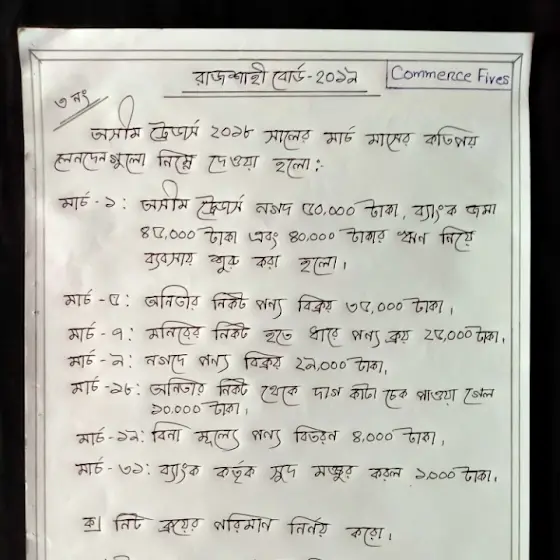 রাজশাহী বোর্ড-২০১৯
Commerce Fives
৩ নং
অসীম ট্রেডার্স ২০১৮ সালের মার্চ মাসের কতিপয়
লেনদেনগুলো নিম্নে দেওয়া হলো:
মার্চ - ১: অসীম ট্রেডার্স নগদ ৫০,০০০ টাকা, ব্যাংক জমা
৪৫,০০০ টাকা এবং ৪০,০০০ টাকার ঋণ নিয়ে
ব্যবসায় শুরু করা হলো।
মার্চ - ৫: অনিতার নিকট পণ্য বিক্রয় ৩৫,০০০ টাকা।
মার্চ - ৭: মনিরের নিকট হতে ধারে পণ্য ক্রয় ২৫,০০০ টাকা।
মার্চ - ৯: নগদে পণ্য বিক্রয় ২৯,০০০ টাকা।
মার্চ -১৮: অনিতার নিকট থেকে দাগ কাটা চেক পাওয়া গেল
১০,০০০ টাকা।
মার্চ -১৯: বিনা মূল্যে পণ্য বিতরন ৪,০০০ টাকা।
মার্চ -৩১: ব্যাংক কর্তৃক সুদ মঞ্জুর করল ১,০০০ টাকা।
ক| নিট ক্রয়ের পরিমান নির্নয় করো।